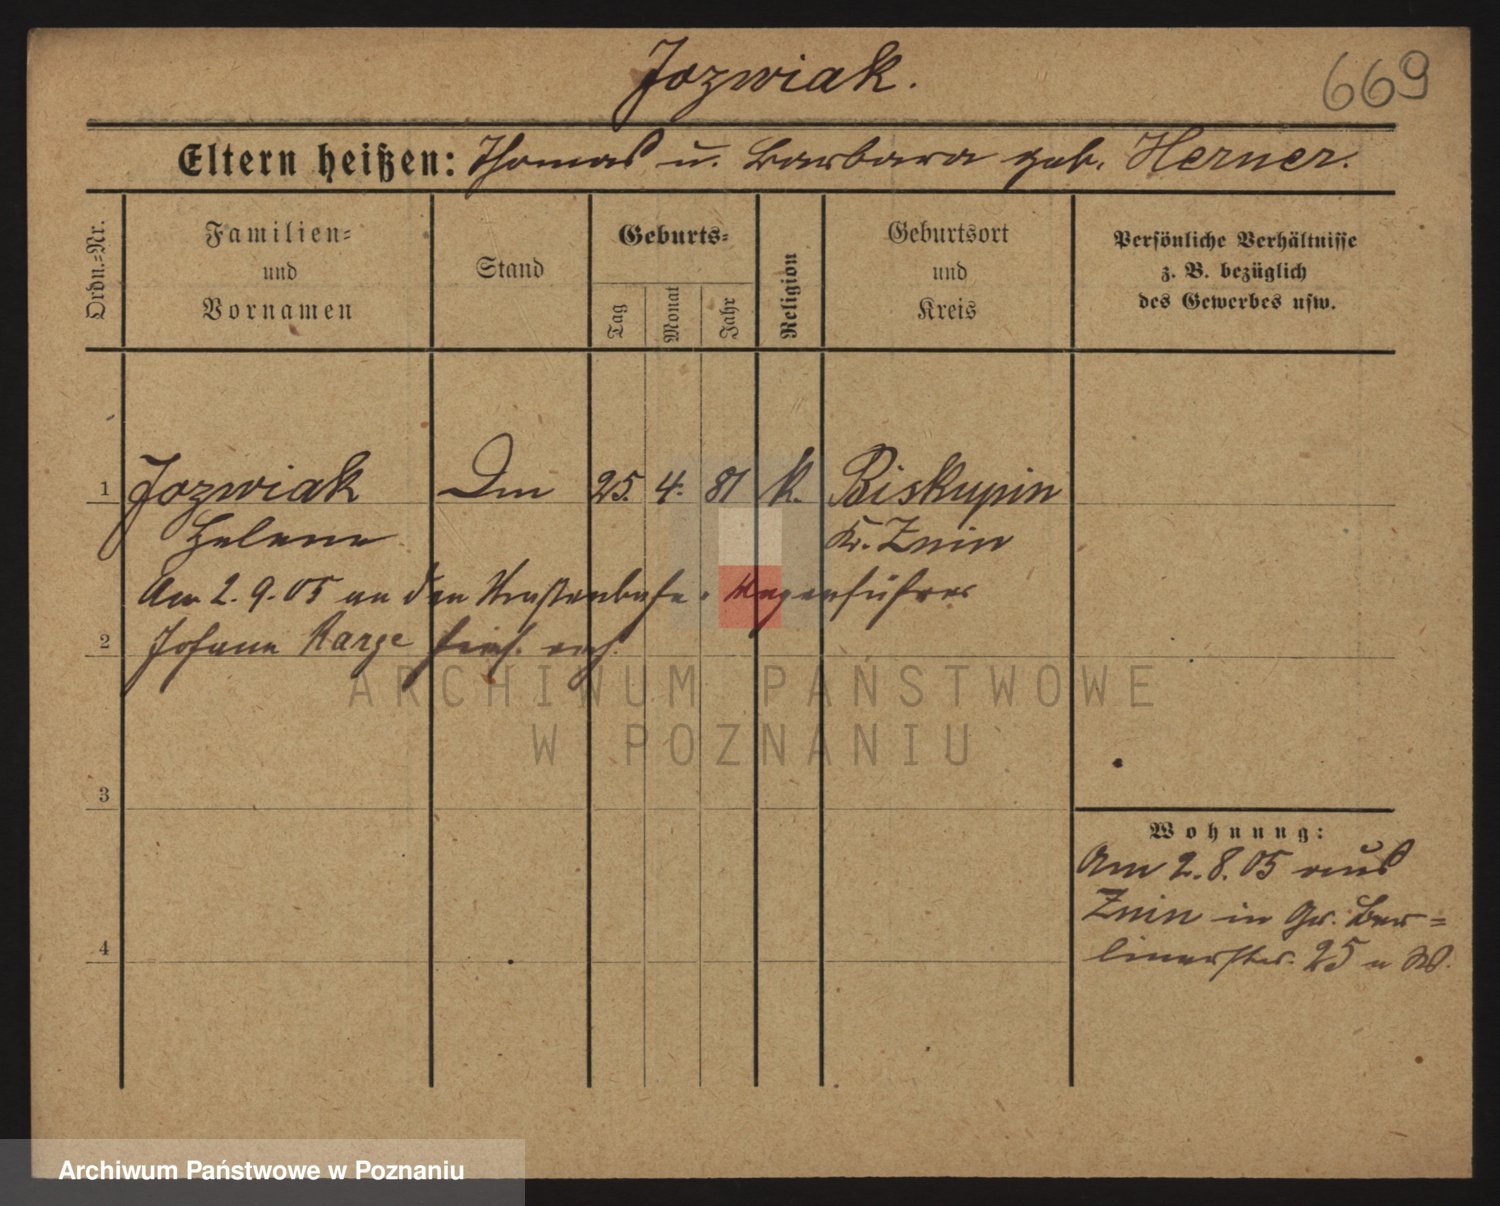 Jozwiak.
669
Eltern heißen: Thomas u. Barbara geb. Herner.
Ordn.-Nr.
Familien-
und
Vornamen
Stand
Geburts-
Tag
Monat
Jahr
Religion
Geburtsort
und
Kreis
Persönliche Verhältnisse
z. B. bezüglich
des Gewerbes usw.
1 Jozwiak 25. 4. 81 k. Biskupin
Helene Kr. Znin
Am 2. 9. 05 an den Straßenbahn-Wagenführer
2 Johann Karge
3
4
Wohnung:
Am 2. 8. 05 aus
Znin in Gr. Ber=
linerstr. 25
ARCHIWUM PAŃSTWOWE
W POZNANIU
Archiwum Państwowe w Poznaniu